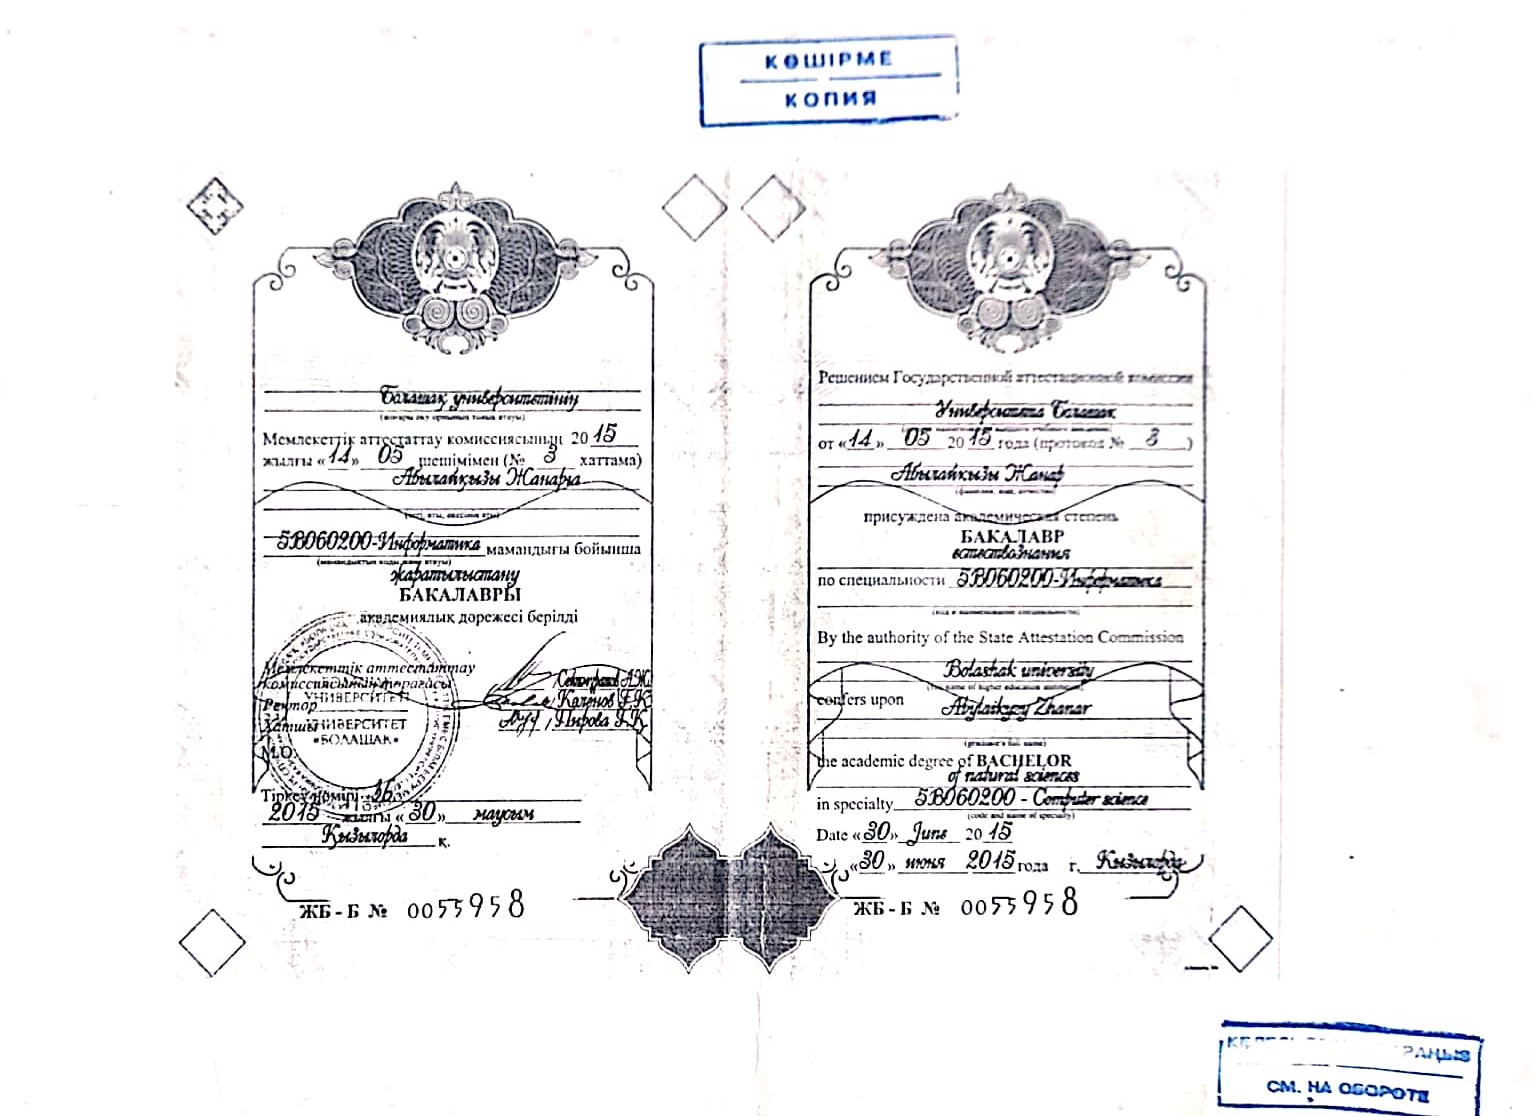 КӨШІРМЕ
КОПИЯ
Болашақ университетінің
(жоғары оқу орнының толық атауы)
Мемлекеттік аттестаттау комиссиясының 2015
жылғы «14» 05 шешімімен (№ 3 хаттама)
Абылайқызы Жанарға
5В060200-Информатика мамандығы бойынша
(мамандықтың коды және атауы)
жаратылыстану
БАКАЛАВРЫ
академиялық дәрежесі берілді
Мемлекеттік аттестаттау
комиссиясының төрағасы
Ректор Каленов Г.К
Хатшы Пирова Г.К
М.О.
УНИВЕРСИТЕТІ
УНИВЕРСИТЕТ
«БОЛАШАК»
Тіркеу нөмірі 36
2015 жылғы «30» маусым
Қызылорда қ.
ЖБ - Б № 0055958
Решением Государственной аттестационной комиссии
Университета Болашак
от «14» 05 2015 года (протокол № 3 )
Абылайкызы Жанар
(фамилия, имя, отчество)
присуждена академическая степень
БАКАЛАВР
естествознания
по специальности 5В060200-Информатика
(код и наименование специальности)
By the authority of the State Attestation Commission
Bolashak university
(full name of higher education institution)
confers upon Abylaikyzy Zhanar
(graduate's full name)
the academic degree of BACHELOR
of natural sciences
in specialty 5B060200 - Computer science
(code and name of specialty)
Date «30» June 2015
«30» июня 2015 года г. Кызылорда
ЖБ - Б № 0055958
СМ. НА ОБОРОТЕ